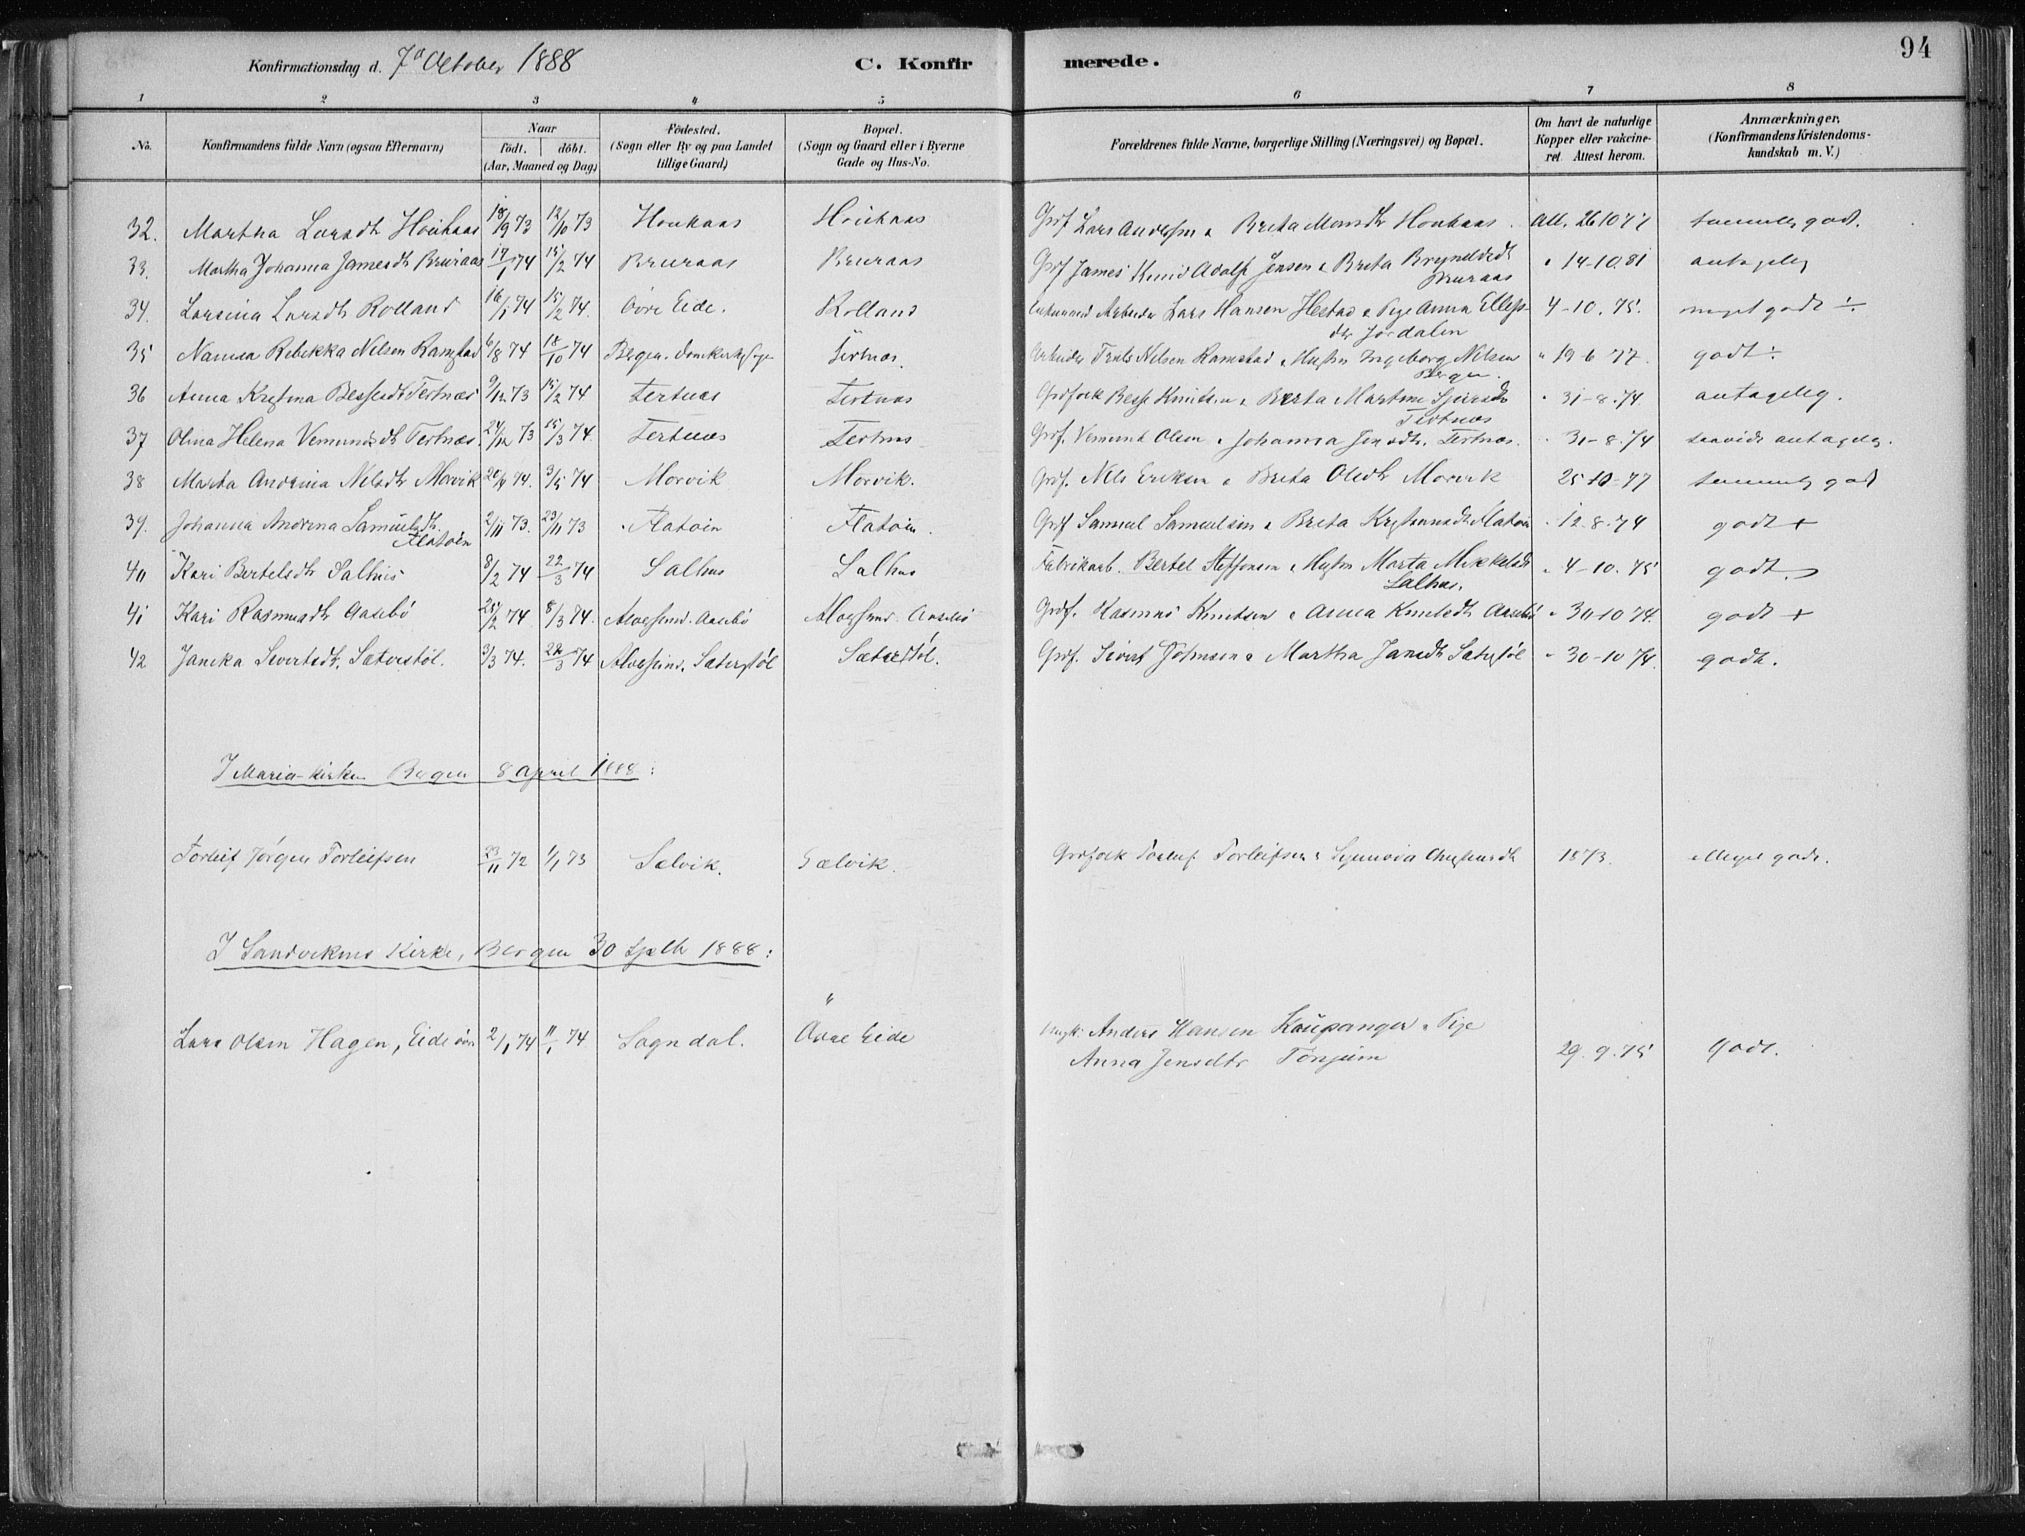 94
Konfirmationsdag d. 7de October 1888 C. Konfirmerede.
1 2 3 4 5 6 7 8
No. Konfirmandens fulde Navn (ogsaa Efternavn) Naar födt. döbt. (Aar, Maaned og Dag) Födested. (Sogn eller By og paa Landet tillige Gaard) Bopæl. (Sogn og Gaard eller i Byerne Gade og Hus-No. Forældrenes fulde Navne, borgerlige Stilling (Næringsvei) og Bopæl. Om havt de naturlige Kopper eller vakcineret. Attest herom. Anmærkninger, (Konfirmandens Kristendomskundskab m. V.)
32. Martha Larsdtr Houkaas 18/9 73 12/10 73 Houkaas Houkaas Grdf Lars Andersen & Brita Monsdtr Houkaas. Att. 26 10 77 temmelig godt.
33. Martha Johanna Jamesdtr Bruraas 17/1 74 15/2 74 Bruraas Bruraas Grdf James Knud Adolf Jensen & Brita Brynildsdtr Bruraas " 14-10.81 antagelig
34. Larsina Larsdtr Rolland 16/1 74 15/2 74. Övre Eide. Rolland Lars Hansen Hestad & Pige Anna Ellefsdtr Jordalen 4-10.75. meget godt ÷
35 Namsa Rebekka Nelsen Ramstad 6/8 74 18/10 74 Bergen. Domkirkesogn Tertnæs. Arbeider Nelsen Ramstad & Hustru Ingeborg Nelsen Bergen. " 19-6-77. godt ÷
36 Anna Kristina Bessesdtr Tertnæs 9/12 73 15/2 74 Tertnæs Tertnæs Grdfolk Besse Knutsen & Berta Martine Sjursdtr Tertnæs " 31-8-74. antagelig.
37 Olina Helena Vemundsdtr Tertnæs. 24/12 73 15/3 74. Tertnæs Tertnæs Grdf. Vemund Olsen & Johanna Jensdtr. Tertnæs. " 31-8.74 antagelig.
38 Marta Andrina Nelsdtr Morvik 20/4 74. 3/5 74 Morvik Morvik. Grdf. Nils Eriksen & Brita Olsdtr Morvik 25-10-77 temmelig godt
39. Johanna Andrina Samuelsdtr. Flatöin 2/11 73. 23/11 73 Flatöin Flatöin. Grdf Samuel Samuelsen & Brita Flatöin " 12-8-74 godt +
40 Kari Bertelsdtr Salhus 8/2 74 22/3 74 Salhus Salhus Fabrikarb. Bertel Steffensen & Hustru Marta Mikkelsdtr Salhus. " 4-10.75 godt
41 Kari Rasmusdtr Aasebö 25/2 74 8/3 74. Alversund. Aasebö Alversund. Aasebö Grdf. Rasmus Knutsen & Anna Knutsdtr Aasebö " 30-10 74. godt +
42 Janika Sivertsdtr. Sæterstöl. 3/3 74. 22/3 74 Alversund. Sæterstöl Sæterstöl. Grdf. Sivert Johnsen & Martha Jansdtr Sæterstöl " 30-10 74. godt.
I Maria-kirken Bergen 8 April 1888:
Torleif Jörgen Torleifsen 23/11 72 1/1 73 Sælvik. Sælvik. Grdfolk Torleif Torleifsen & Synneva 1873. Meget godt.
I Sandvikens Kirke, Bergen 30 Septb 1888:
Lars Olsen Hagen, Eide övre 2/1 74 11/1 74 Sogndal. Övre Eide Ungk. Anders Hansen Kaupanger & Pige Anna Jensdtr Tönjum 29.9.75 Godt.